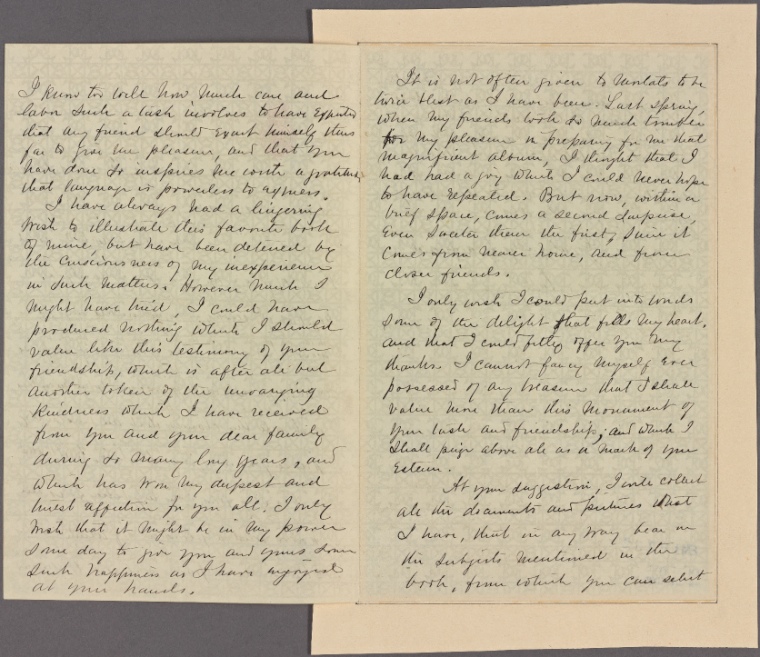 I know too well how much care and
labor such a task involves to have expected
that any friend should exert himself thus
far to give me pleasure, and that you
have done so inspires me with a gratitude
that language is powerless to express.
I have always had a lingering
wish to illustrate this favorite book
of mine, but have been deterred by
the consciousness of my inexperience
in such matters. However much I
might have tried, I could have
produced nothing which I should
value like this testimony of your
friendship, which is after all but
another token of the unvarying
kindness which I have received
from you and your dear family
during so many long years, and
which has won my deepest and
truest affection for you all. I only
wish that it might be in my power
some day to give you and yours some
such happiness as I have enjoyed
at your hands.
It is not often given to mortals to be
twice blest as I have been. Last spring,
when my friends took so much trouble
for my pleasure in preparing for me that
magnificent album, I thought that I
had had a joy which I could never hope
to have repeated. But now, within a
brief space, comes a second surprise,
even sweeter than the first, since it
comes from nearer home, and from
closer friends.
I only wish I could put into words
some of the delight that fills my heart,
and that I could fitly offer you my
thanks. I cannot fancy myself ever
possessed of any treasure that I shall
value more than this monument of
your taste and friendship; and which I
shall prize above all as a mark of your
esteem.
At your suggestion, I will collect
all the documents and pictures that
I have, that in any way bear on
the subjects mentioned in the
book, from which you can select